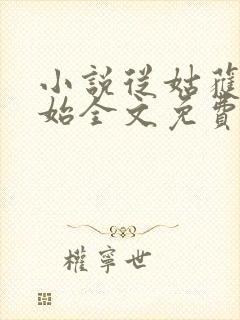 小說從姑蘇
始全文免費
權寧世